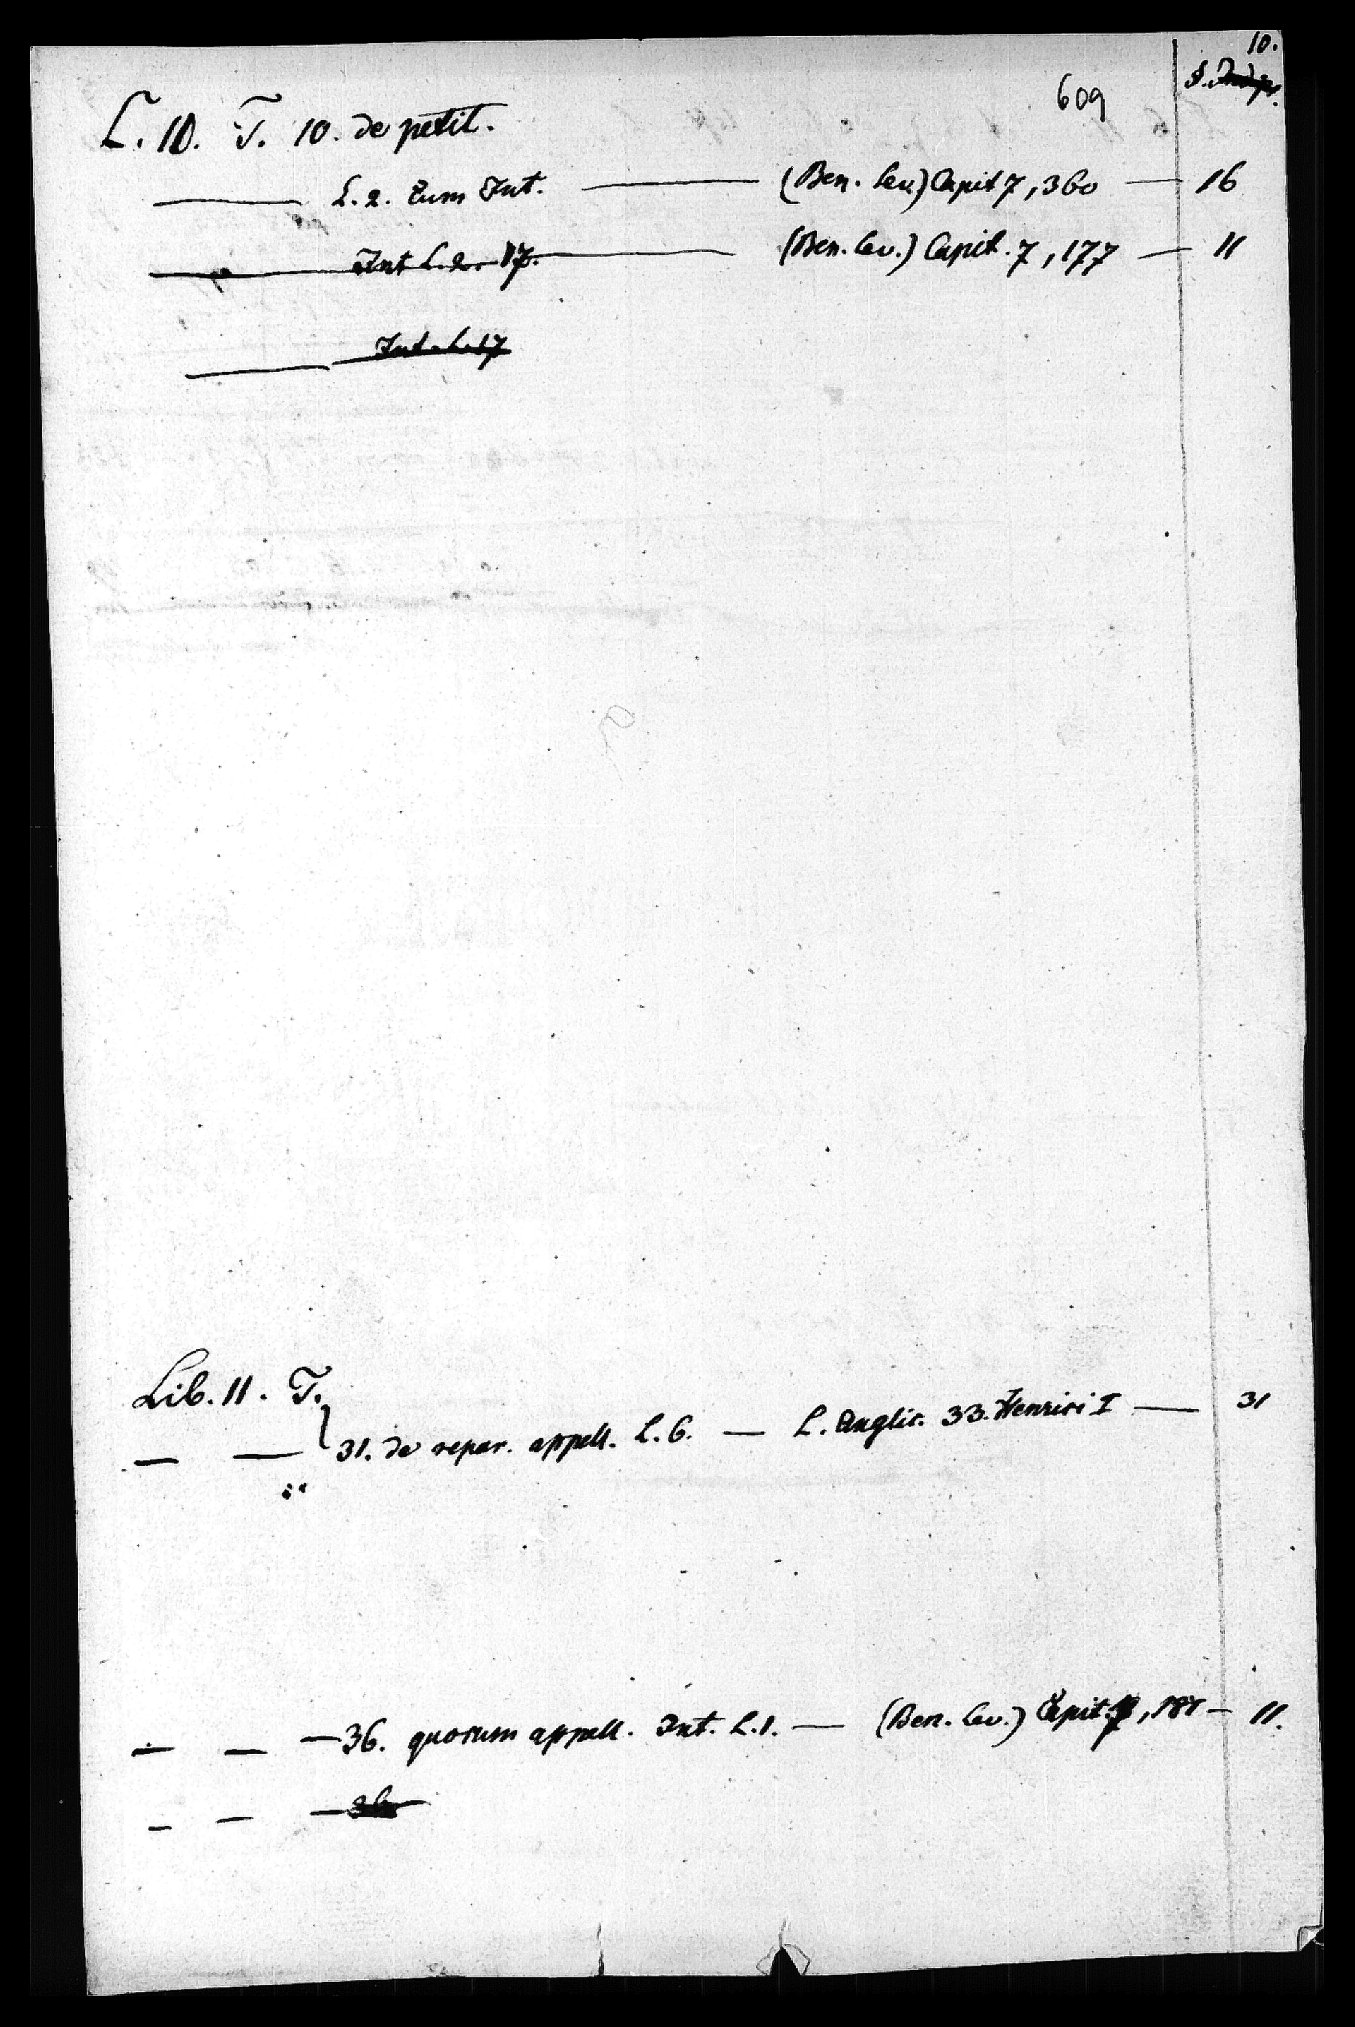 10.
609
L. 10. T. 10. de petit.
— L. 2. zum Int. — (Ben. Lev.) Capit 7, 360 — 16
— Int L. 2. 17. — (Ben. Lev.) Capit. 7, 177 — 11
— Int. L. 17
Lib. 11. T.
— — 31. de repar. appell. L. 6. — L. Anglic. 33. Henrici I — 31
— — — 36. quorum appell. Int. L. 1. — (Ben. Lev.) Capit. 7, 181 — 11.
— — — 36